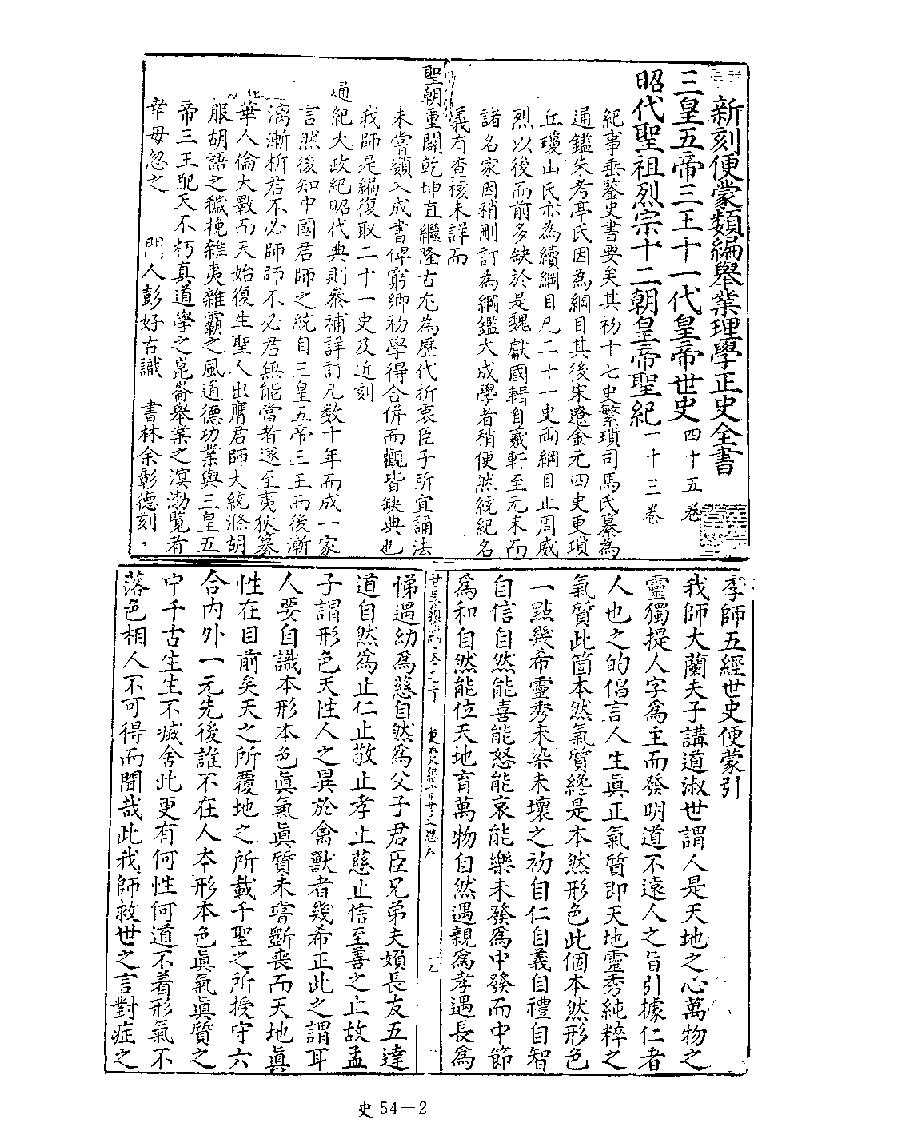 新刻便蒙類編舉業理學正史全書
三皇五帝三王十一代皇帝世史 四十五卷
昭代聖祖烈宗十二朝皇帝聖紀 一十三卷
紀事垂鑒史書要矣其初十七史繁瑣司馬氏纂為
通鑑朱考亭氏因為綱目其後宋遼金元四史更瑣
丘瓊山氏亦為續綱目凡二十一史両綱目止周威
烈以後而前多缺於是魏獻國輯自羲軒至元末而
諸名家因稍刪訂為綱鑑大成學者稍便然統紀名
義有查核未詳而
聖朝重闢乾坤直繼隆古尤為歷代折衷臣子所宜誦法
未嘗類入成書俾窮鄉初學得合併而觀皆缺典也
我師是編復取二十一史及近刻
通紀大政紀昭代典則叅補詳訂凡数十年而成一家
言然後知中國君師之統自三皇五帝三王而後漸
漓漸析君不必師師不必君無能當者遂至夷狄簒
華人倫大斁而天始復生聖人出膺君師大統滌胡
服胡語之穢穐雜夷雜霸之風道德功業與三皇五
帝三王配天不朽真道學之崑崙舉業之溟渤覽者
幸毋忽之 門人彭好古識 書林余彰德刻
季師五經世史便蒙引
我師大蘭夫子講道淑世謂人是天地之心萬物之
靈獨提人字為主而發明道不遠人之旨引據仁者
人也之的倡言人生眞正氣質即天地靈秀純粹之
氣質此箇本然氣質終是本然形色此個本然形色
一點幾希靈秀未染未壞之初自仁自義自禮自智
自信自然能喜能怒能哀能樂未發為中發而中節
為和自然能位天地育萬物自然遇親為孝遇長為
悌遇幼為慈自然為父子君臣兄弟夫婦長友五達
道自然為止仁止敬止孝止慈止信至善之止故孟
子謂形色天性人之異於禽獸者幾希正此之謂耳
人要自識本形本色眞氣眞質未嘗斷喪而天地眞
性在目前矣天之所覆地之所載千聖之所授守六
合內外一元先後誰不在人本形本色眞氣眞質之
中千古生生不滅舍此更有何性何道不着形氣不
落色相人不可得而聞哉此我師救世之言對症之
史 54－2